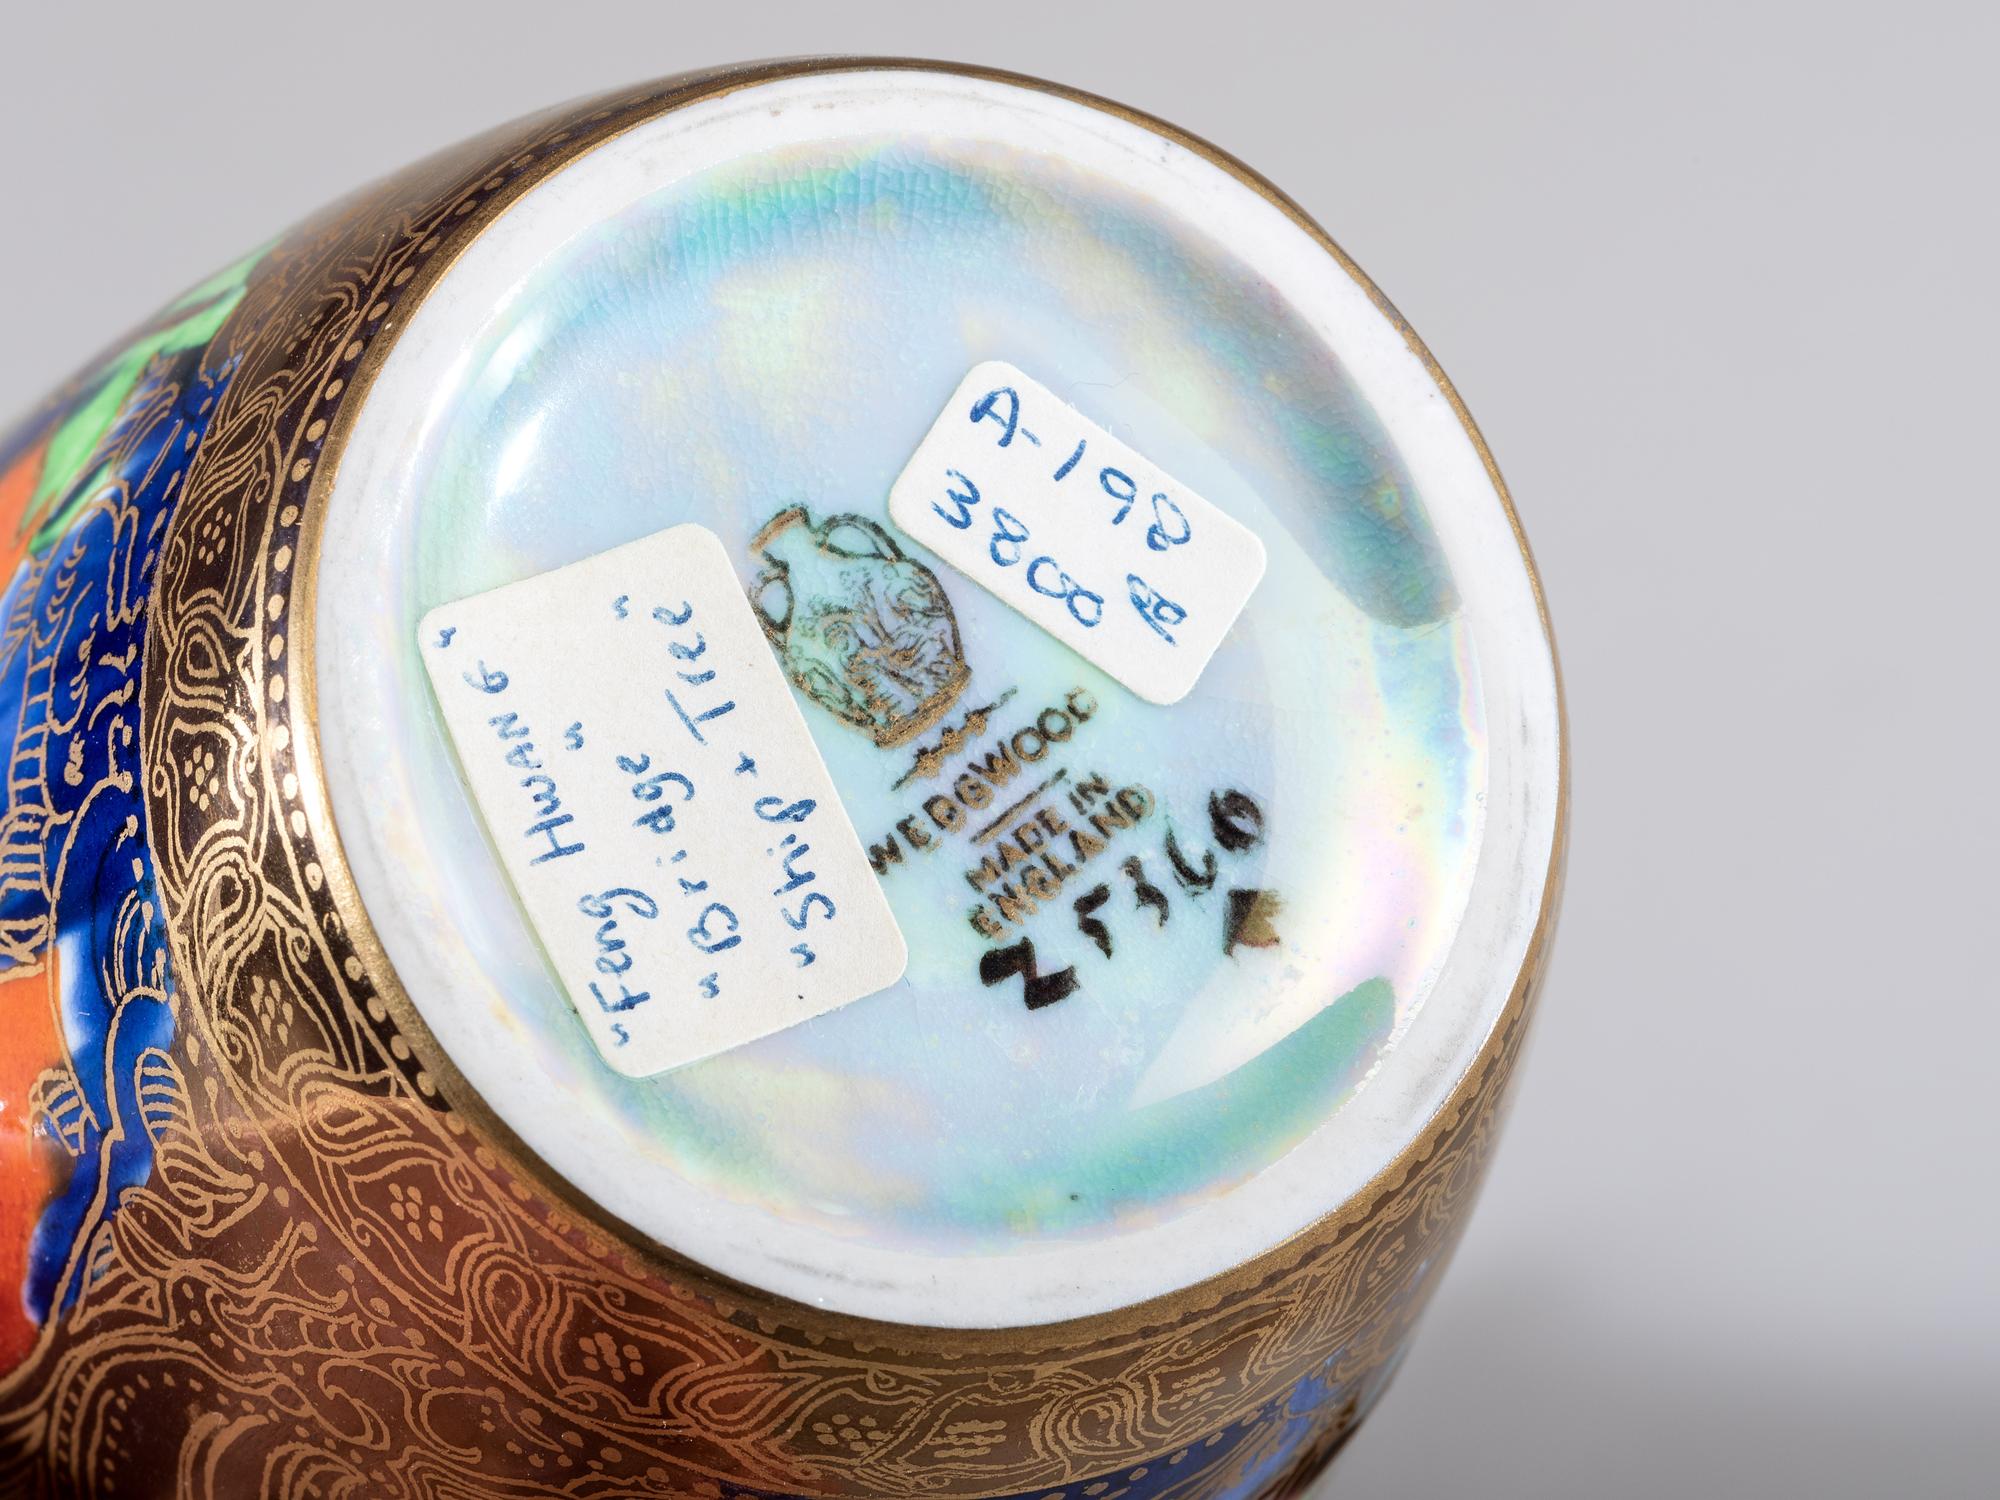 "Feng Hwang"
"Bridge"
"Ship + Tree"
A-198
3800
WEDGWOOD
MADE IN
ENGLAND
Z5360